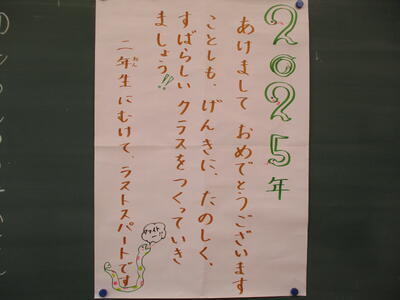 2025年
あけまして おめでとうございます
ことしも、げんきに、たのしく、
すばらしい クラスをつくっていき
ましょう!!
二年生にむけて、ラストスパートです
ねん
ファイトー